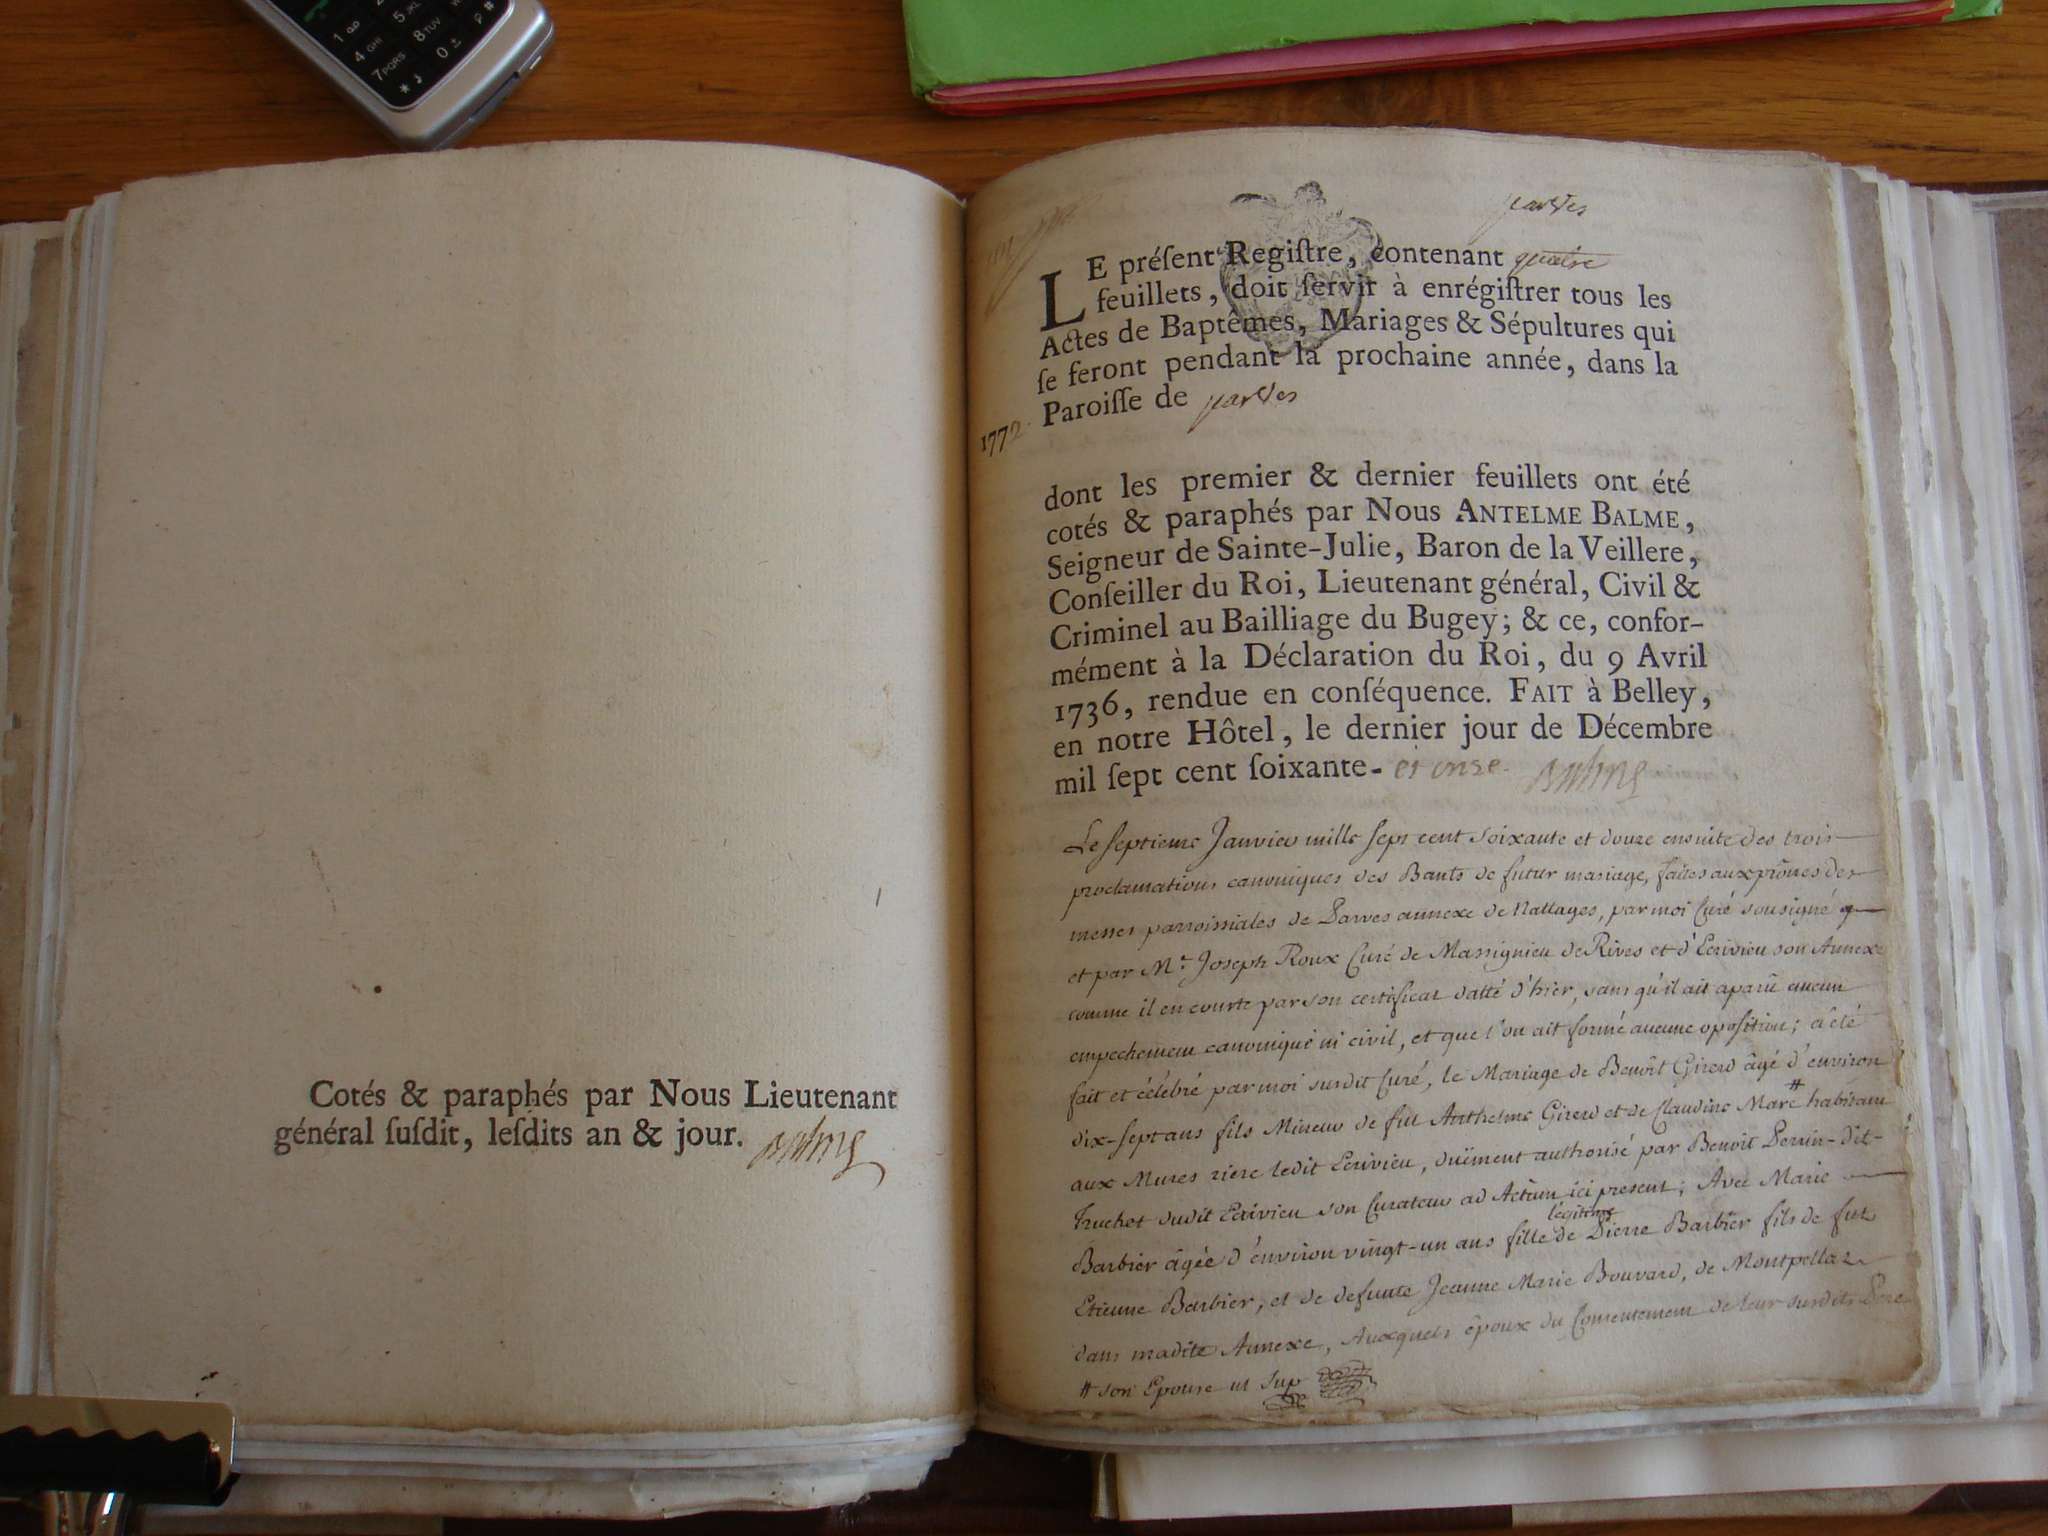 Cotés & paraphés par Nous Lieutenant
général ſuſdit, leſdits an & jour. Balme
parves
LE préſent Regiſtre, contenant quatre
feuillets, doit ſervir à enrégiſtrer tous les
Actes de Baptêmes, Mariages & Sépultures qui
ſe feront pendant la prochaine année, dans la
Paroiſſe de parves
1772.
dont les premier & dernier feuillets ont été
cotés & paraphés par Nous ANTELME BALME,
Seigneur de Sainte-Julie, Baron de la Veillere,
Conſeiller du Roi, Lieutenant général, Civil &
Criminel au Bailliage du Bugey; & ce, confor-
mément à la Déclaration du Roi, du 9 Avril
1736, rendue en conſéquence. FAIT à Belley,
en notre Hôtel, le dernier jour de Décembre
mil ſept cent ſoixante- et onze. Balme
Le septieme Janvier mille sept cent soixante et douze ensuite des trois
proclamations canoniques des Bants de futur mariage, faites aux prônes des
messes parroissiales de Parves annexe de Nattages, par moi Curé sousigné
et par Mr. Joseph Roux Curé de Massignieu de Rives et d'Ecrivieu son Annexe
comme il en courte par son certificat datté d'hier, sans qu'il ait aparû aucun
empechement canonique ni civil, et que l'on ait formé aucune oposition; a été
fait et célébré par moi susdit Curé, le Mariage de Benoît Girerd âgé d'environ
dix-sept ans fils Mineur de fut Anthelme Girerd et de Claudine Mare # habitant
aux Mures riere ledit Ecrivieu, duëment authorisé par Benoit Perrin-dit-
Truchet dudit Ecrivieu son Curateur ad Actum ici present; Avec Marie
Barbier âgée d'environ vingt-un ans fille légitime de Pierre Barbier fils de fut
Etienne Barbier, et de defunte Jeanne Marie Bouvard, de Montpellaz
dans madite Annexe, Auxquels époux du Consentement de leur susdits Pere
# son Epouse ut sup
1 2 5 JKL
4 GHI 8 TUV
7 PQRS 0 #
*